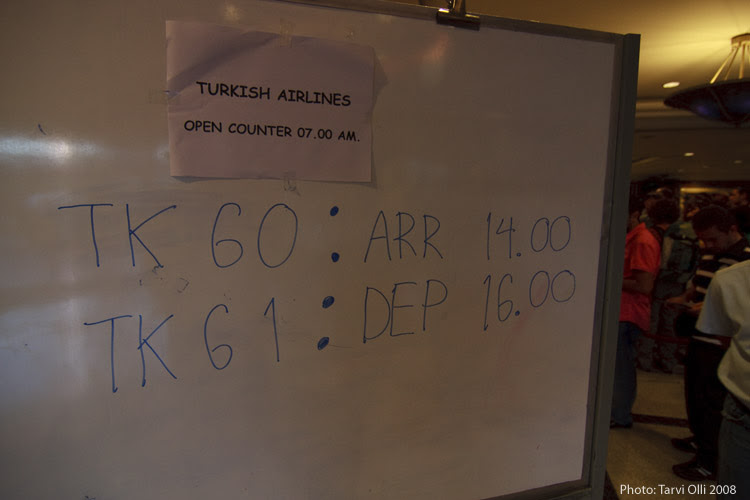 TURKISH AIRLINES
OPEN COUNTER 07.00 AM.
TK 60 : ARR 14.00
TK 61 : DEP 16.00
Photo: Tarvi Olli 2008